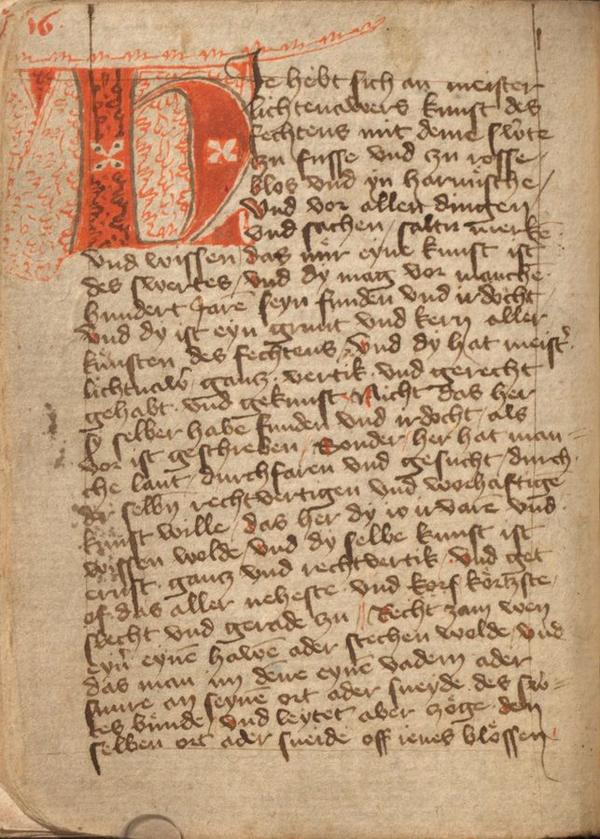 16
Hie hebt sich an meister
lichtenawers kunst des
fechtens mit deme swte
czu fusse vnd czu rosse
blos vnd yn harnüsche /
Vnd vor allen dingen /
vnd sachen / saltu merke
vnd wissen das nür eyne kunst ist
des swertes / vnd dy mag vor manche
hundert Jare seyn funden vnd irdocht
Vnd dy ist eyn grunt vnd kern aller
künsten des fechtens / vnd dy hat meist'
lichtnaw' gancz vertik vnd gerecht
gehabt vnd gekunst / Nicht das her
sy selber habe funden vnd irdocht als
vor ist geschreben / Sonder her hat man=
che lant durchfaren vnd gesucht / durch
der selbn rechtvertigen vnd worhaftige
kunst wille / das her dy io irvarē vnd
wissen wolde / vnd dy selbe kunst ist
ernst gancz vnd rechtvertik / Vnd get
of das aller neheste vnd körtzste
slecht vnd gerade czu / Recht zam wen
eyn' eynē hawē ader stechen wolde / vnd
das man im dene eynē vadem ader
snure an seynē ort ader sneyde des sw=
tes bünde / vnd leytet ader czöge den
selben ort ader sneide off ienes blössen